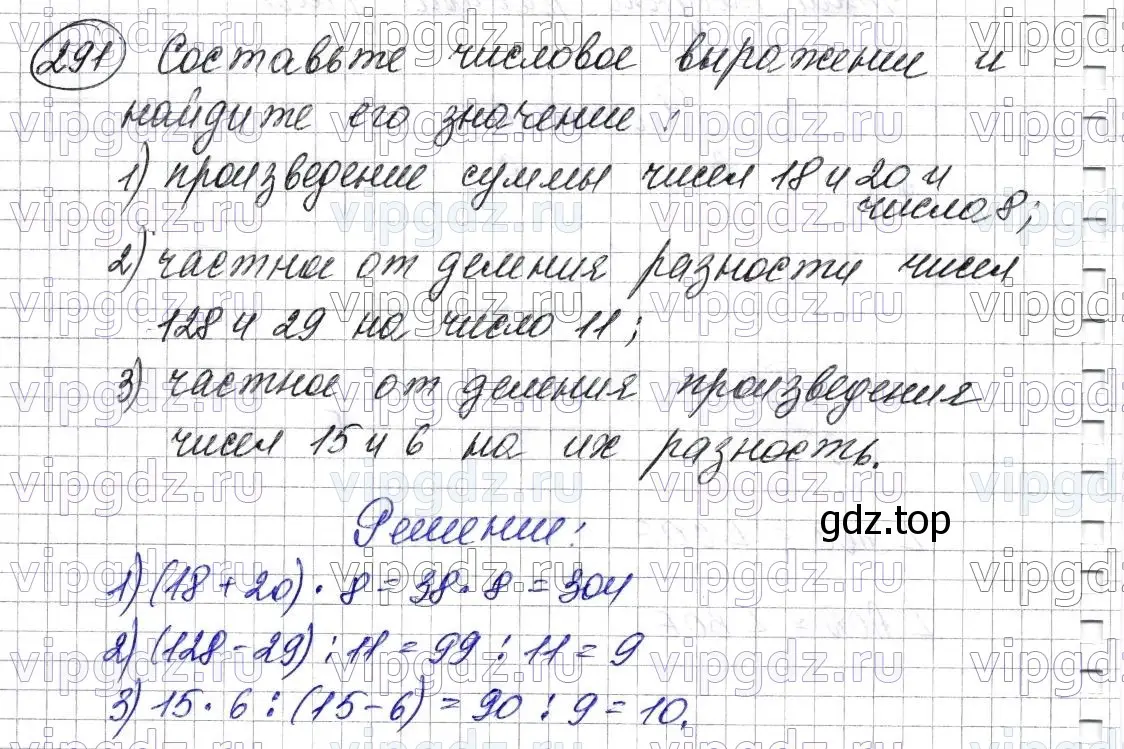 291 Составьте числовое выражение и
найдите его значение:
1) произведение суммы чисел 18 и 20 и
числа 8;
2) частное от деления разности чисел
128 и 29 на число 11;
3) частное от деления произведения
чисел 15 и 6 на их разность.
Решение:
gdz.top
1) (18 + 20) · 8 = 38 · 8 = 304
2) (128 - 29) : 11 = 99 : 11 = 9
3) 15 · 6 : (15 - 6) = 90 : 9 = 10.
vipgdz.ru